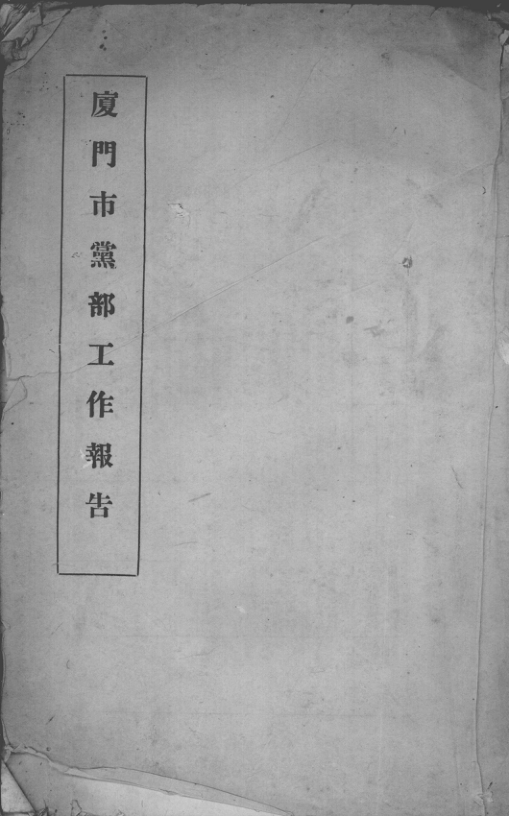 廈門市黨部工作報告